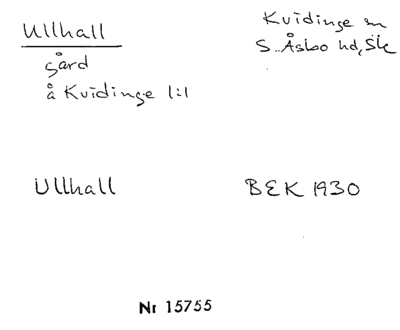 Ullhall
gård
å Kvidinge 1:1
Kvidinge sn
S. Åsbo hd, Sk
Ullhall
BEK 1930
Nr 15755